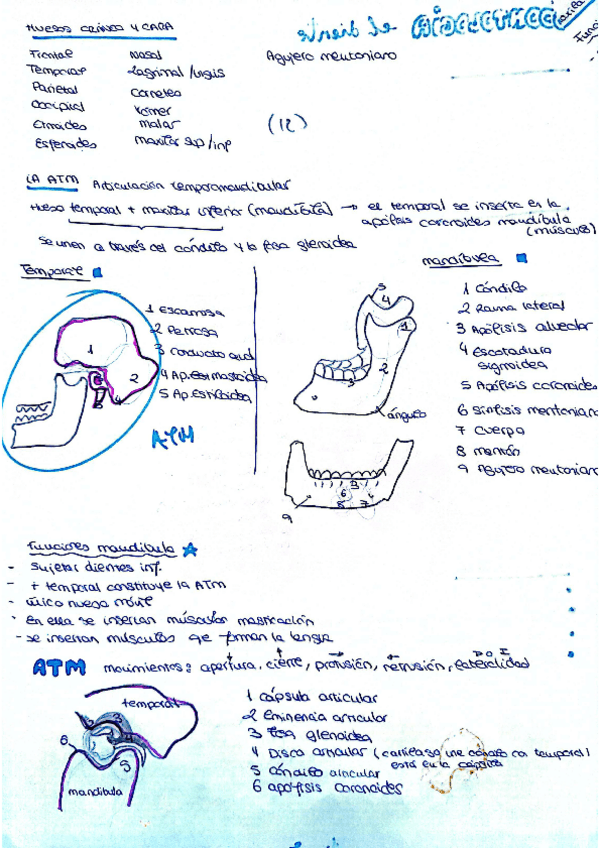 HUESOS CRÁNEO Y CARA
Frontal
Temporal
Parietal
Occipital
Etmoides
Esfenoides
Nasal
Lagrimal /unguis
Cornetes
Vómer
malar
maxilar sup/inf
Agujero mentoniano
(12)
LA ATM Articulación temporomandibular
Hueso temporal + maxilar inferior (mandíbula) → el temporal se inserta en la
apófisis coronoides mandíbula
(músculo)
Se unen a través del cóndilo y la fosa glenoidea
Temporal
1 Escamosa
2 Petrosa
3 Conducto aud.
4 Ap. estmastoidea
5 Ap. Estiloidea
1
2
4
ATM
mandíbula
5
4
1
2
3
ángulo
3
6
8
7
9
1 Cóndilo
2 Rama lateral
3 Apófisis alveolar
4 Escotadura
sigmoidea
5 Apófisis coronoides
6 Sínfisis mentoniana
7 Cuerpo
8 mentón
9 Agujero mentoniano
Funciones mandíbula
- Sujetar dientes inf.
- + temporal constituye la ATM
- único hueso móvil
- En ella se insertan músculos masticación
- se insertan músculos que forman la lengua
ATM movimientos: apertura, cierre, protusión, retrusión, lateralidad
D O I
temporal
mandíbula
6
3
2
5
1 cápsula articular
2 Eminencia articular
3 Fosa glenoidea
4 Disco articular (cartílago une cóndilo con temporal)
está en la cápsula
5 cóndilo articular
6 apófisis coronoides